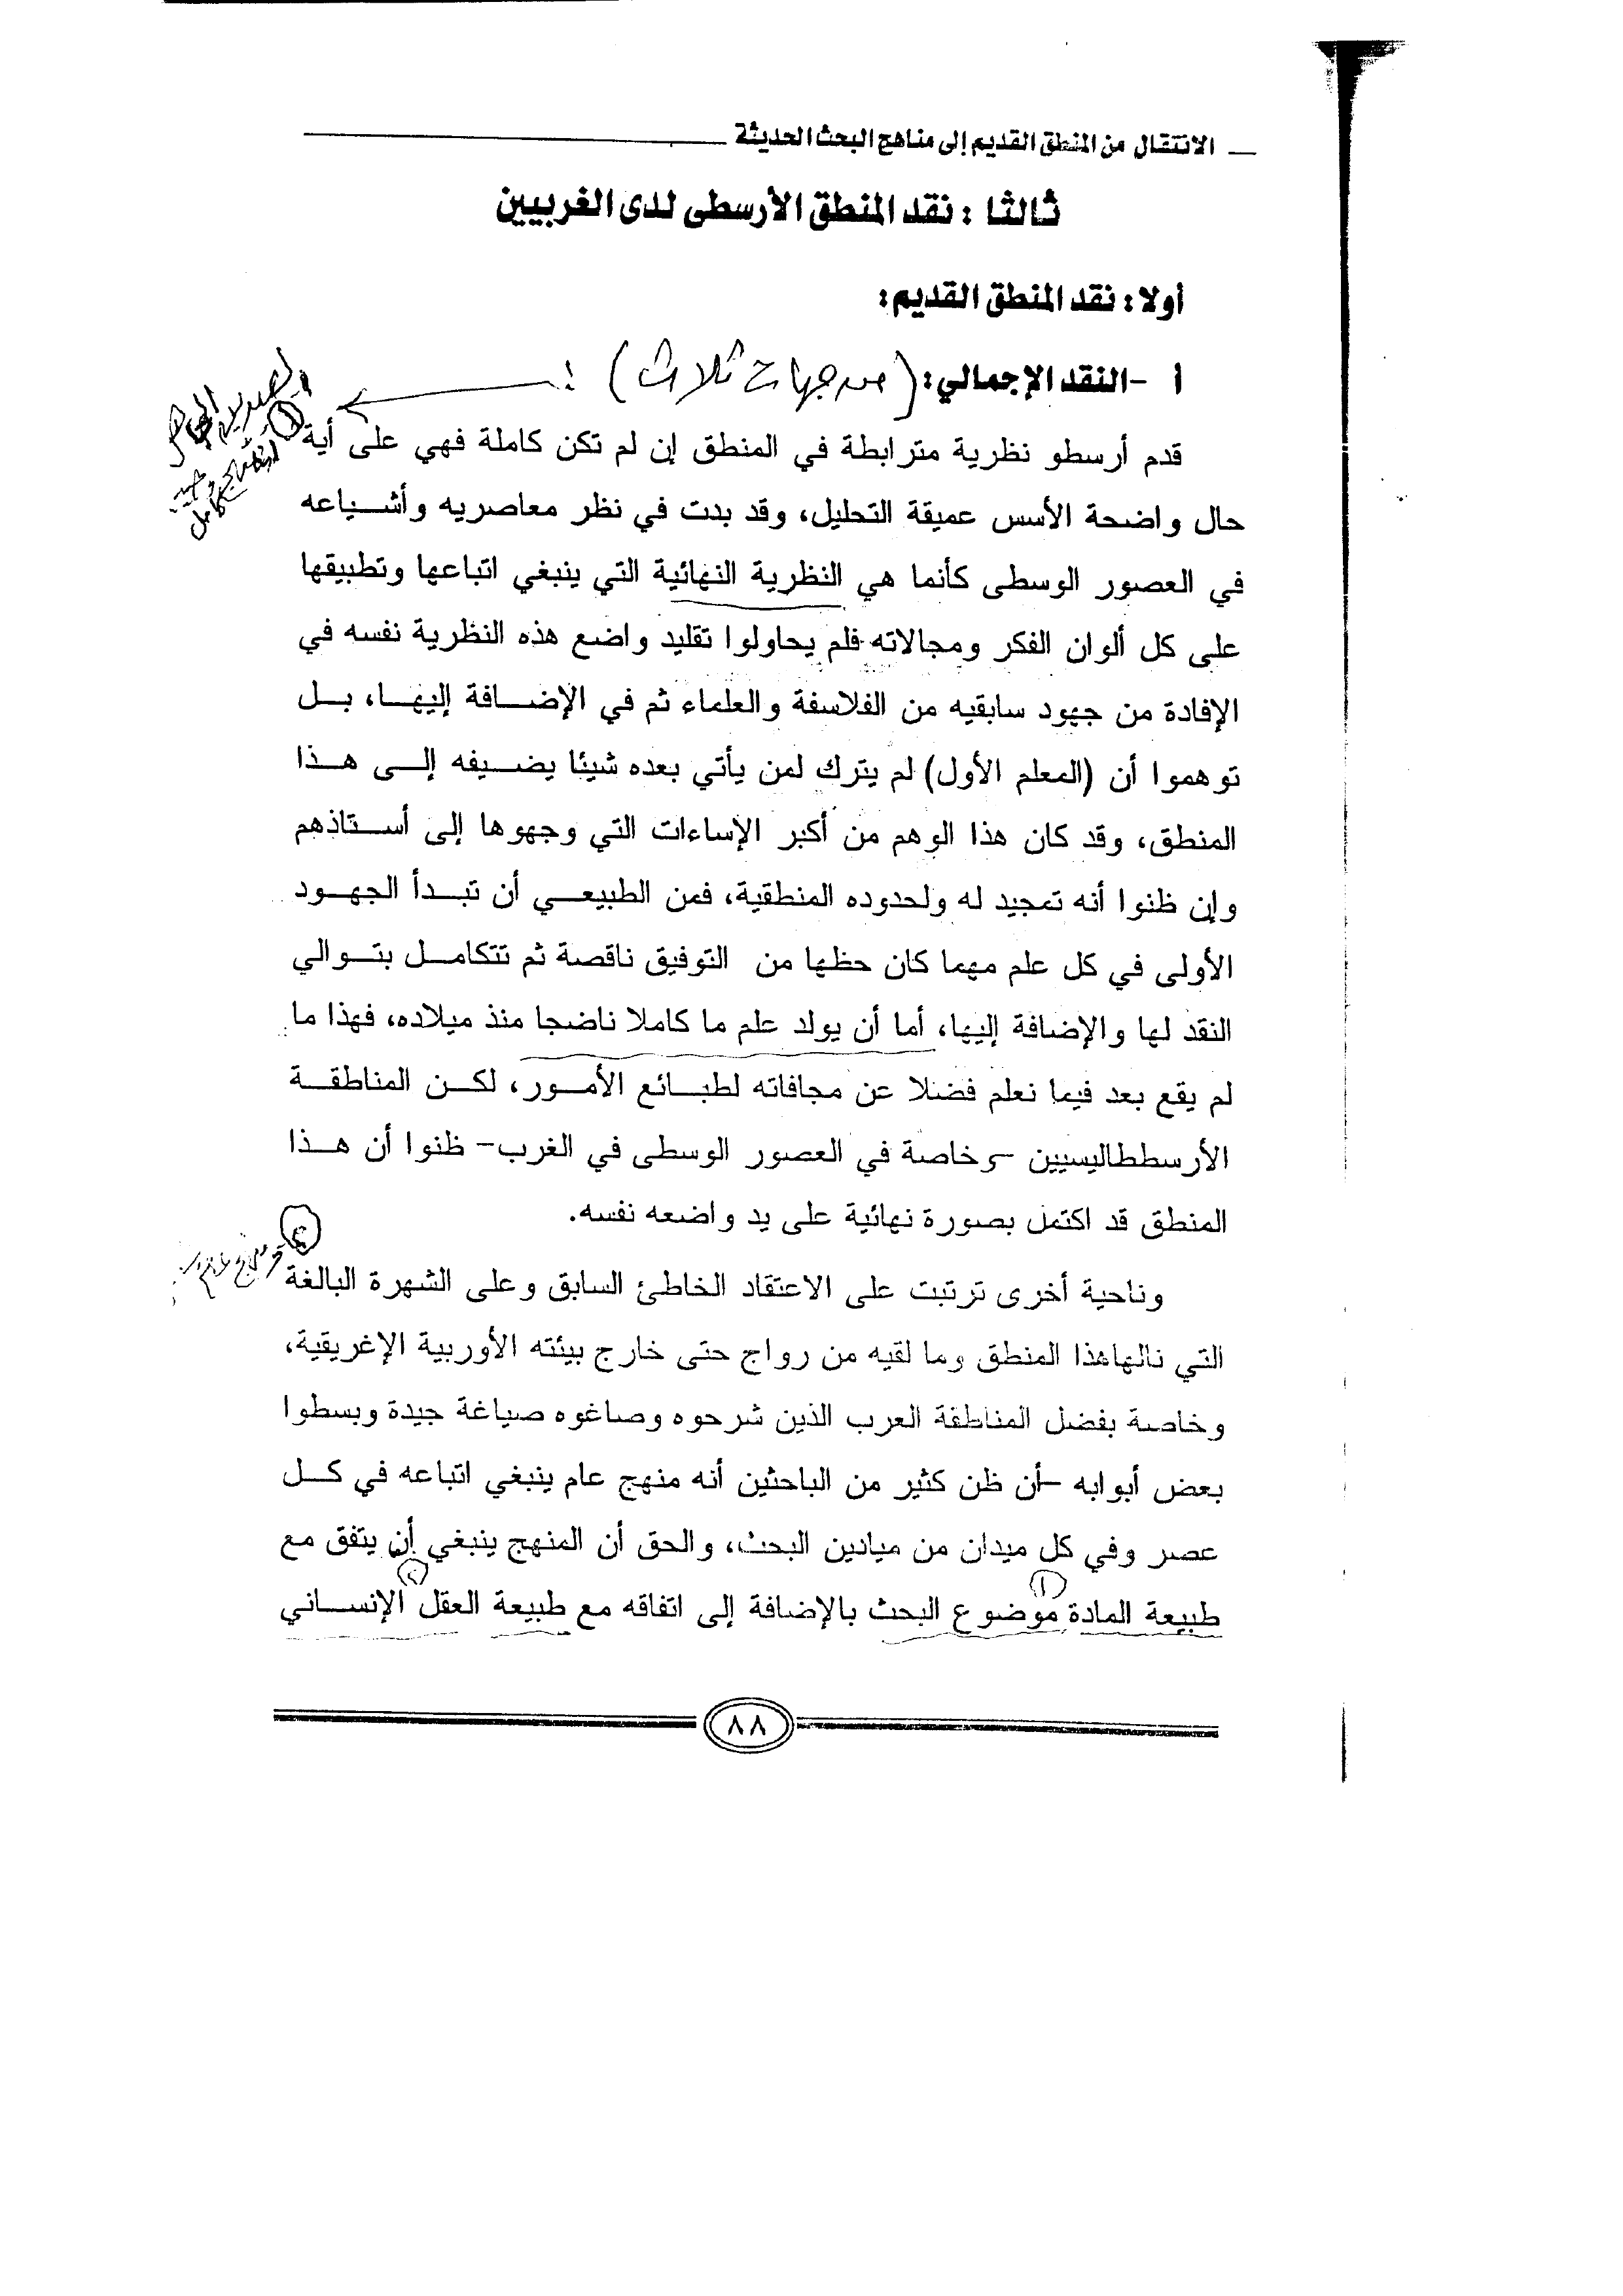 الانتقال من المنطق القديم إلى مناهج البحث الحديثة
ثالثا : نقد المنطق الأرسطى لدى الغربيين
أولا: نقد المنطق القديم:
أ -النقد الإجمالي: (من جهات ثلاث) :
قدم أرسطو نظرية مترابطة في المنطق إن لم تكن كاملة فهي على أية
حال واضحة الأسس عميقة التحليل، وقد بدت في نظر معاصريه وأشياعه
في العصور الوسطى كأنما هي النظرية النهائية التي ينبغي اتباعها وتطبيقها
على كل ألوان الفكر ومجالاته فلم يحاولوا تقليد واضع هذه النظرية نفسه في
الإفادة من جهود سابقيه من الفلاسفة والعلماء ثم في الإضافة إليها، بل
توهموا أن (المعلم الأول) لم يترك لمن يأتي بعده شيئا يضيفه إلى هذا
المنطق، وقد كان هذا الوهم من أكبر الإساءات التي وجهوها إلى أستاذهم
وإن ظنوا أنه تمجيد له ولحدوده المنطقية، فمن الطبيعي أن تبدأ الجهود
الأولى في كل علم مهما كان حظها من التوفيق ناقصة ثم تتكامل بتوالي
النقد لها والإضافة إليها، أما أن يولد علم ما كاملا ناضجا منذ ميلاده، فهذا ما
لم يقع بعد فيما نعلم فضلا عن مجافاته لطبائع الأمور، لكن المناطقة
الأرسططاليسيين -وخاصة في العصور الوسطى في الغرب- ظنوا أن هذا
المنطق قد اكتمل بصورة نهائية على يد واضعه نفسه.
وناحية أخرى ترتبت على الاعتقاد الخاطئ السابق وعلى الشهرة البالغة
التي نالهاهذا المنطق وما لقيه من رواج حتى خارج بيئته الأوربية الإغريقية،
وخاصة بفضل المناطقة العرب الذين شرحوه وصاغوه صياغة جيدة وبسطوا
بعض أبوابه -أن ظن كثير من الباحثين أنه منهج عام ينبغي اتباعه في كل
عصر وفي كل ميدان من ميادين البحث، والحق أن المنهج ينبغي أن يتفق مع
طبيعة المادة موضوع البحث بالإضافة إلى اتفاقه مع طبيعة العقل الإنساني
٨٨